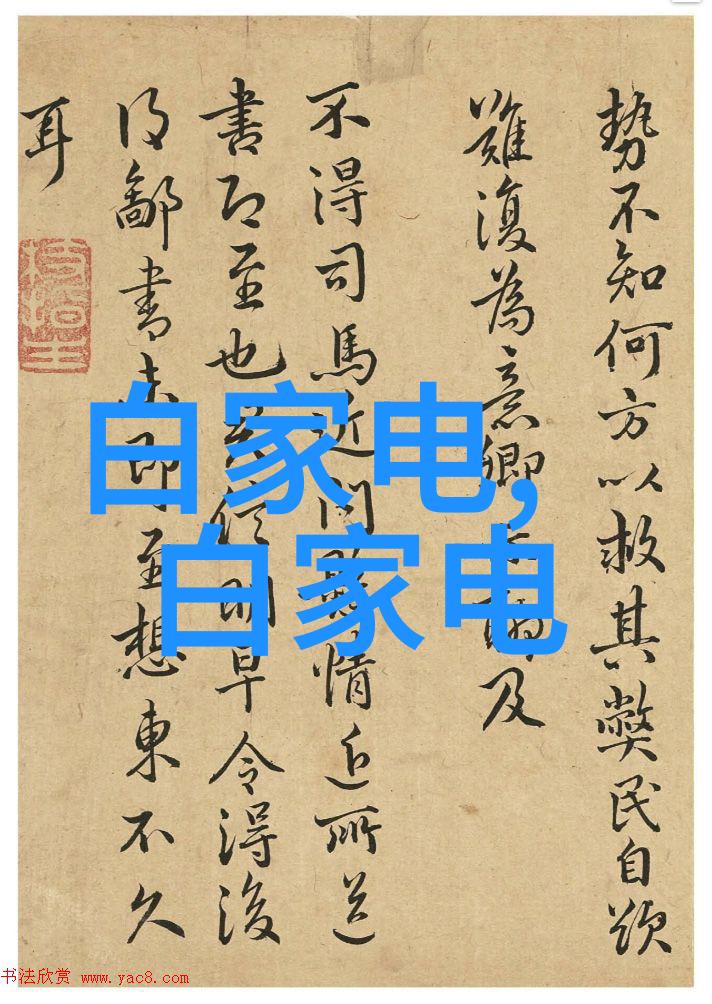 勢不知何方以救其弊民自欲
難復為意卿及
不得司馬近問情近所送
書即至也信明早令得後
得鄙書未即至想東不久
耳
白家电,
白家电
书法欣赏 www.yac8.com